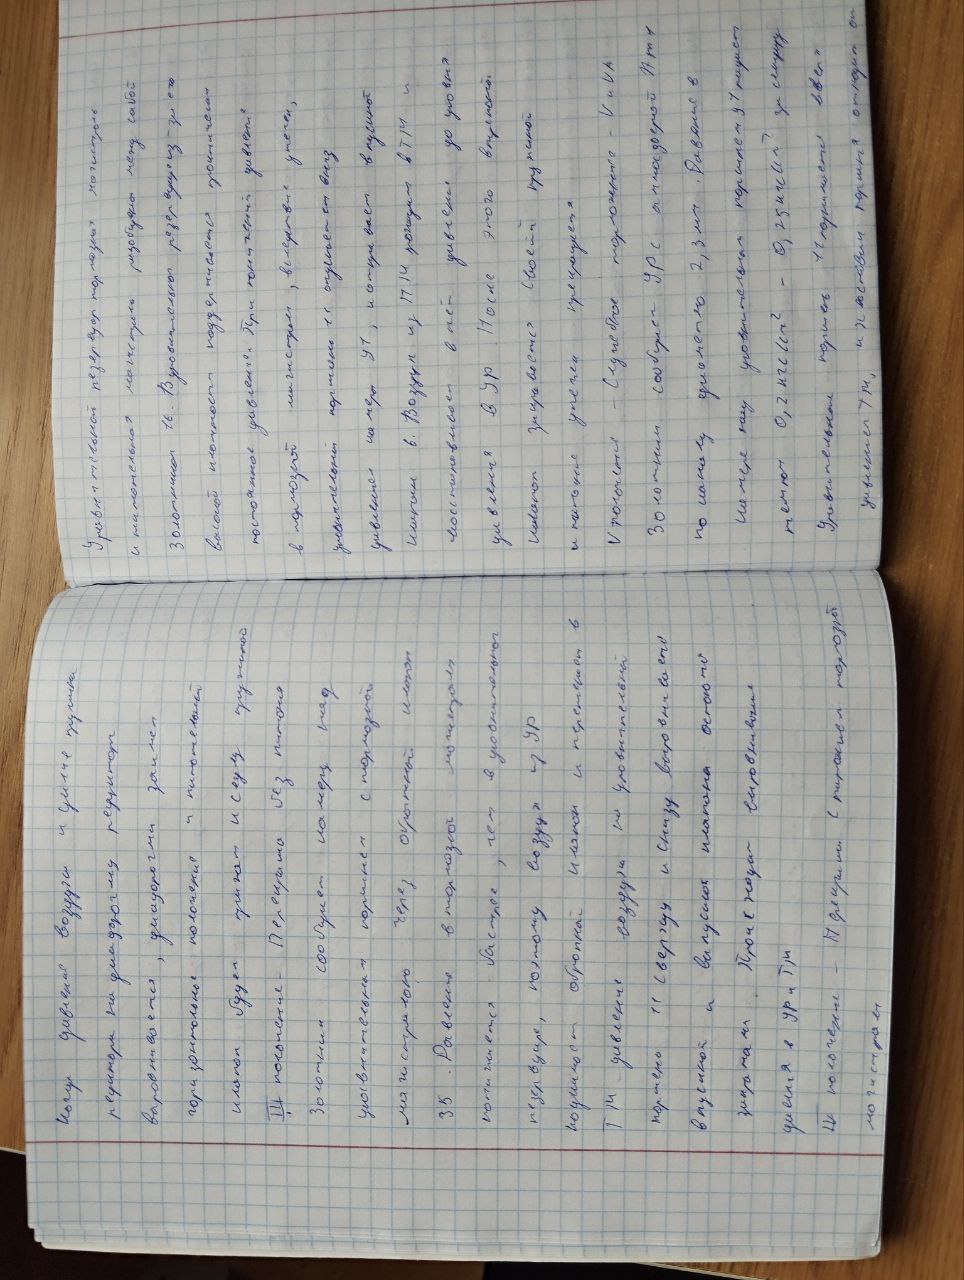 Когда давление воздуха и усилие пружины
редуктора на диафрагму редуктора
выровнивается, диафрагма займет
горизонтальное положение и питательный
клапан будет прижат к седлу пружиной
III положение - Перекрыша без питания
Золотник сообщает камеру над
уравнительным поршнем с тормозной
магистралью через обратный клапан
35. Давление в тормозной магистрали
понижается быстрее, чем в уравнительном
резервуаре, поэтому воздух из УР
поднимает обратный клапан и перетекает в
ТМ давление воздуха на уравнительный
поршень 11 сверху и снизу выровнивается
впускной и выпускной клапана остаются
закрытами. Происходит выровнивания
давления в УР и ТМ
IV положение - Перекрыша с питанием тормозной
магистрали
Уравнительный резервуар тормозная магистраль
и питательная магистраль разобщены между собой
Золотником 16. В уравнительном резервуаре из-за его
высокой плотности поддерживается практически
постоянное давление. При понижении давления
в тормозной магистрали, вследствие утечек,
уравнительный поршень 11 опускается вниз
давлением камеры У1, и открывает впускной
клапан в. Воздух из ПМ проходит в ТМ и
восстанавливает в ней давление до уровня
давления в УР. После этого впускной
клапан закрывается своей пружиной
и питание утечек прекращается
V положение - Служебное торможение - V и VA
Золотник сообщает УР с атмосферой Ат4
по каналу диаметро 2,3мм. Давление в
камере над уравнительным поршнем У1 падает
темпом 0,2 кгс/см² - 0,25кгс/см² за секунду
Уравнительный поршень 11 поднимается вверх
давлением ТМ, и хвостовик поршня отходит от